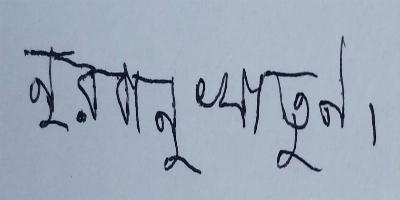 নুরবানু খাতুন।